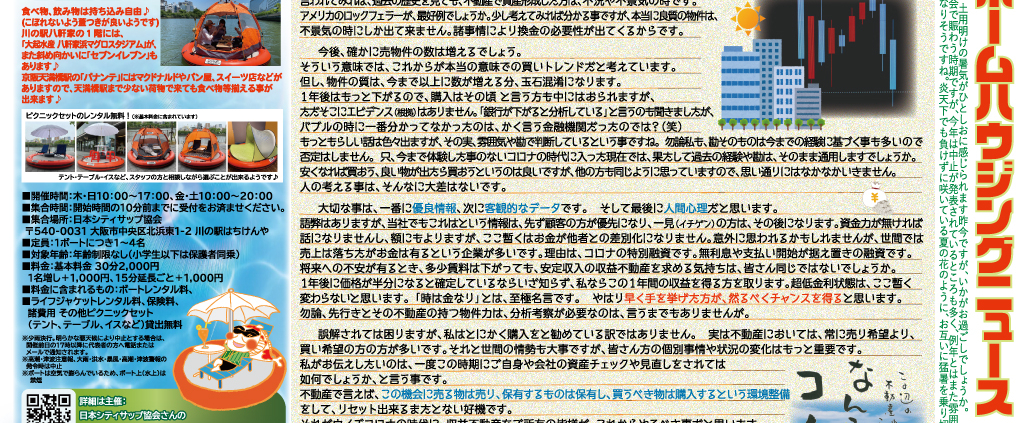 ホームハウジングニュース
土用明けの暑気がひとしおに感じられます昨今ですが、いかがお過ごしでしょうか。
会で賑わう時期ですが、今年は中止が発表されているところも多く、例年とはまた雰囲
なりそうですね。炎天下でも負けずに咲いている夏の花のように、お互いに猛暑を乗り切
アメリカのロックフェラーが、最好例でしょうか。少し考えてみれば分かる事ですが、本当に良質の物件は、
不景気の時にしか出て来ません。諸事情により換金の必要性が出てくるからです。
今後、確かに売物件の数は増えるでしょう。
そういう意味では、これからが本当の意味での買いトレンドだと考えています。
但し、物件の質は、今まで以上に数が増える分、玉石混淆になります。
1年後はもっと下がるので、購入はその頃 と言う方も中にはおられますが、
ただそこにエビデンス(根拠)はありません。「銀行が下がると分析している」と言うのも聞きましたが、
バブルの時に一番分かってなかったのは、かく言う金融機関だったのでは?(笑)
もっともらしい話は色々出ますが、その実、雰囲気や勘で判断しているという事です。勿論私も、勘そのものは今までの経験に基づく事も多いので
否定はしません。只、今まで体験した事のないコロナの時代に入った現在では、果たして過去の経験や勘は、そのまま通用しますでしょうか。
安くなれば買おう、良い物が出たら買おうというのは良いですが、他の方も同じように思っていますので、思い通りにはなかなかいきません。
人の考える事は、そんなに大差はないです。
大切な事は、一番に優良情報、次に客観的なデータです。 そして最後に人間心理だと思います。
語弊はありますが、当社でもこれはという情報は、先ず顧客の方が優先になり、一見(イチゲン)の方は、その後になります。資金力が無ければ
話になりませんし、額にもよりますが、ここ暫くはお金が他者との差別化になりません。意外に思われるかもしれませんが、世間では
売上は落ちた方がお金は有るという企業が多いです。理由は、コロナの特別融資です。無利息や支払い開始が据え置きの融資です。
将来への不安が有るとき、多少賃料は下がっても、安定収入の収益不動産を求める気持ちは、皆さん同じではないでしょうか。
1年後に価格が半分になると確定しているならいざ知らず、私ならこの1年間の収益を得る方を取ります。超低金利状態は、ここ暫く
変わらないと思います。「時は金なり」とは、至極名言です。 やはり早く手を挙げた方が、然るべくチャンスを得ると思います。
勿論、先行きとその不動産の持つ物件力は、分析考察が必要なのは、言うまでもありませんが。
誤解されては困りますが、私はとにかく購入をと勧めている訳ではありません。 実は不動産においては、常に売り希望より、
買い希望の方の方が多いです。それと世間の情勢も大事ですが、皆さん方の個別事情や状況の変化はもっと重要です。
私がお伝えしたいのは、一度この時期にご自身や会社の資産チェックや見直しをされては
如何でしょうか、と言う事です。
不動産で言えば、この機会に売る物は売り、保有するものは保有し、買うべき物は購入するという環境整備
をして、リセット出来るまたとない好機です。
食べ物、飲み物は持ち込み自由♪
(にこぼれないよう置つきが良いようです)
川の駅八軒家の1階には、
「大起水産 八軒家浜マグロスタジアム」が、
また斜め向かいに「セブンイレブン」も
あります♪
京阪天満橋駅の「パナンテ」にはマクドナルドやパン屋、スイーツ店などが
ありますので、天満橋駅まで少ない荷物で来ても食べ物等揃える事が
出来ます♪
ピクニックセットのレンタル無料!(※基本料金に含まれています)
テント・テーブル・イスなど、スタッフの方と相談しながら選ぶことが出来るようです♪
■開催時間:木・日10:00~17:00、金・土10:00~20:00
■集合時間:開始時間の10分前までに受付をお済ませください。
■集合場所:日本シティサップ協会
〒540-0031 大阪市中央区北浜東1-2 川の駅はちけんや
■定員:1ボートにつき1~4名
■対象年齢:年齢制限なし(小学生以下は保護者同乗)
■料金:基本料金 30分2,000円
1名増し+1,000円、15分延長ごと+1,000円
■料金に含まれるもの:ボートレンタル料、
■ライフジャケットレンタル料、保険料、
諸費用 その他ピクニックセット
(テント、テーブル、イスなど)貸出無料
※少雨決行。明らかな悪天候により中止とする場合は、
開催前日の17時以降に代表者の方へ電話または
メールで通知されます。
※高潮・津波注意報、大雨・洪水・暴風・高潮・津波警報の
発令時は中止
※ボートは空気で膨らんでいるため、ボート上(水上)は
禁煙
詳細は主催:
日本シティサップ協会さんの
この辺の
不動産
なん
コ